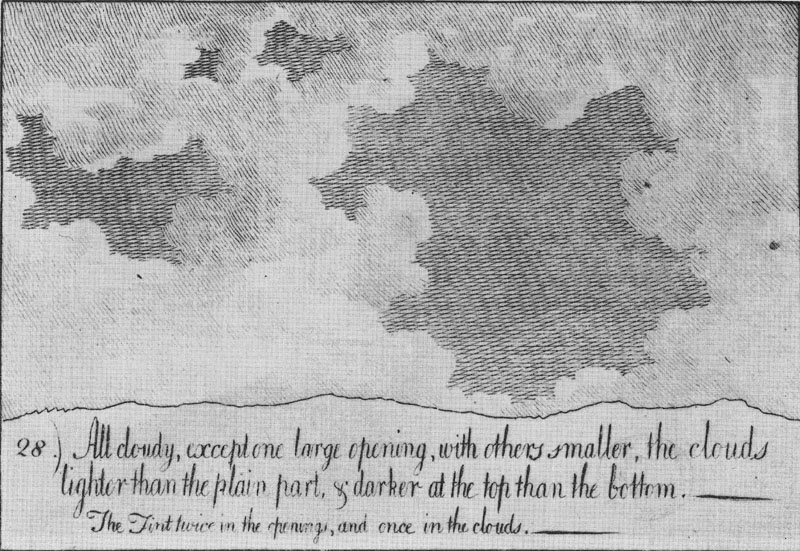 28.) All cloudy, except one large opening, with others smaller, the clouds
lighter than the plain part, & darker at the top than the bottom.
The Tint twice in the openings, and once in the clouds.